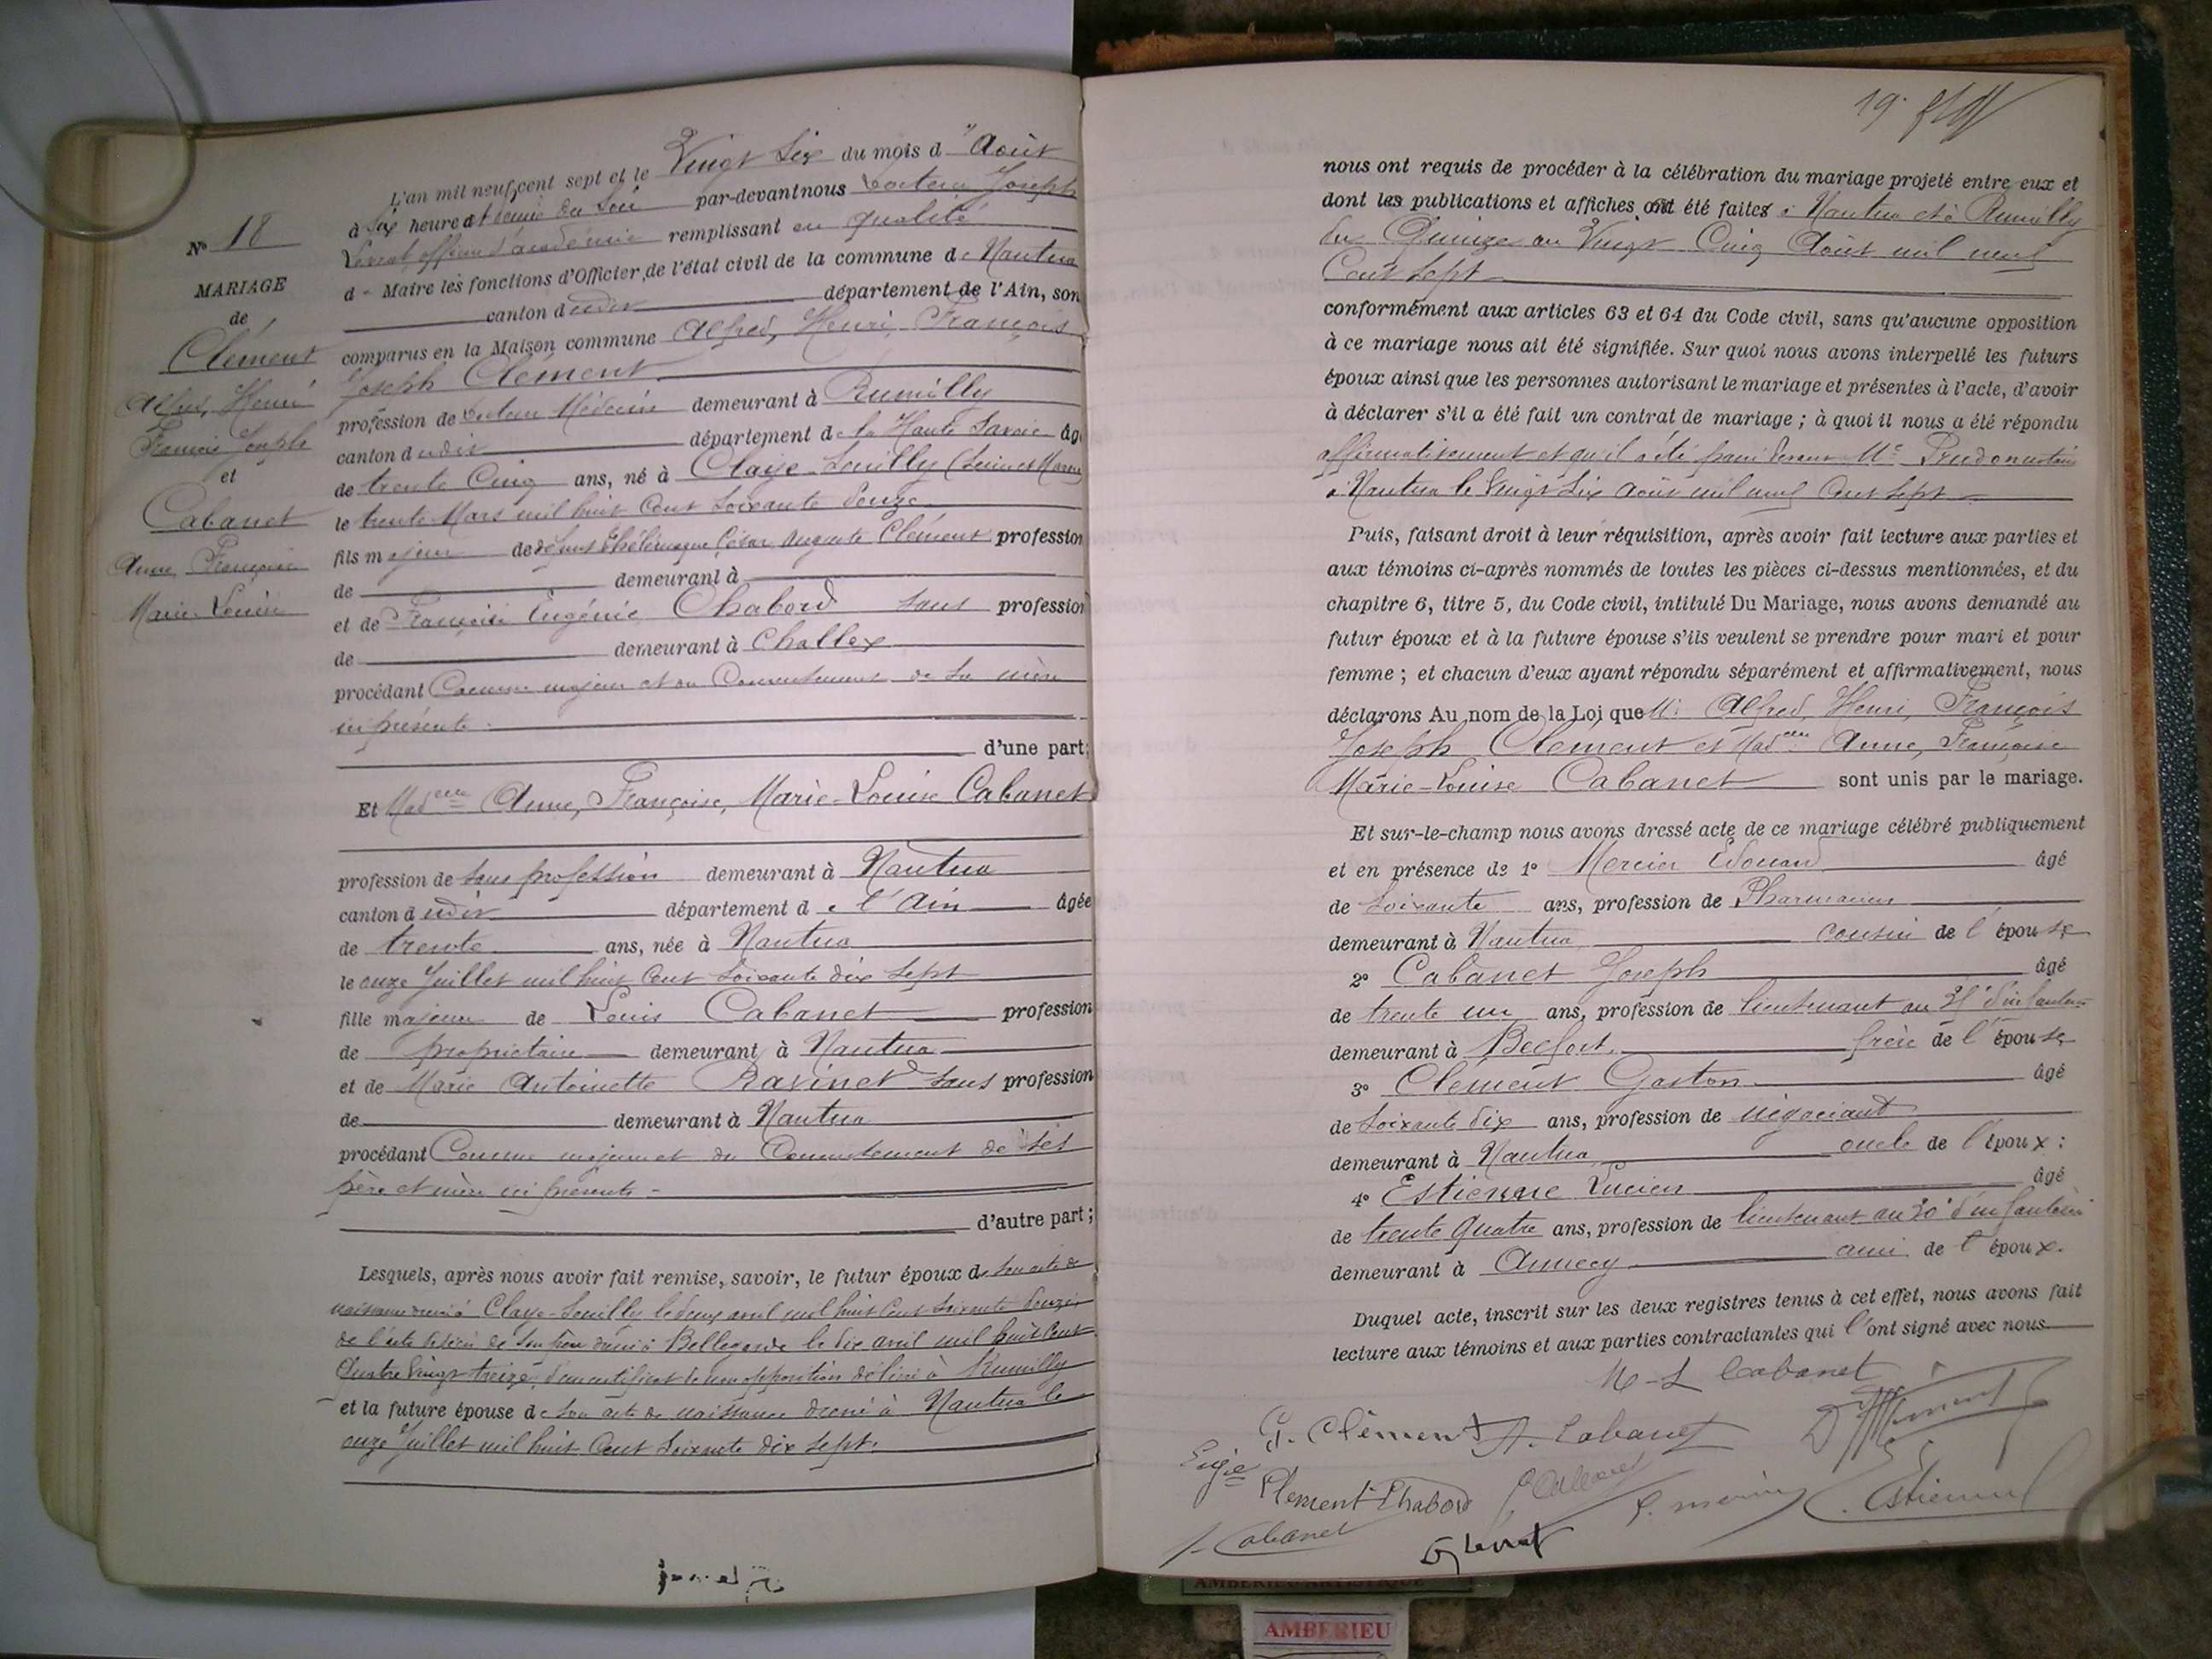 N° 18
MARIAGE
de
Clément
Alfred, Henri
François Joseph
et
Cabanet
Anne, Françoise
Marie-Louise
L'an mil neuf cent sept et le Vingt Six du mois d'' Août
à Six heure et demie du Soir par-devant nous Docteur Joseph
officier d'académie remplissant en qualité
d- Maire les fonctions d'Officier de l'état civil de la commune de Nantua
canton dudit département de l'Ain, son
comparus en la Maison commune Alfred, Henri, François
Joseph Clément
profession de Docteur Médecin demeurant à Rumilly
canton dudit département de la Haute Savoie âg
de trente Cinq ans, né à Claye-Souilly (Seine et Marne)
le trente Mars mil huit Cent Soixante Douze
fils majeur de défunt Thélémaque César Auguste Clément profession
de demeurant à
et de Françoise Eugénie Chabord sans profession
de demeurant à Challex
procédant Comme majeur et du Consentement de sa mère
ici présente.
d'une part;
Et Madelle Anne, Françoise, Marie-Louise Cabanet
profession de sans profession demeurant à Nantua
canton dudit département de l'Ain âgée
de trente ans, née à Nantua
le onze Juillet mil huit Cent Soixante dix Sept
fille majeure de Louis Cabanet profession
de propriétaire demeurant à Nantua
et de Marie Antoinette Ravinet sans profession
de demeurant à Nantua
procédant Comme majeure et du Consentement de ses
père et mère ici présents -
d'autre part;
Lesquels, après nous avoir fait remise, savoir, le futur époux de son acte de
naissance dressé à Claye-Souilly le deux avril mil huit Cent Soixante Douze,
de l'acte de décès de son père dressé à Bellegarde le dix avril mil huit Cent
Quatre Vingt treize, d'un certificat de non opposition délivré à Rumilly
et la future épouse de son acte de naissance dressé à Nantua le
onze Juillet mil huit Cent Soixante dix Sept.
19.
nous ont requis de procéder à la célébration du mariage projeté entre eux et
dont les publications et affiches ont été faites à Nantua et à Rumilly
du Quinze au Vingt Cinq Août mil neuf
Cent Sept
conformément aux articles 63 et 64 du Code civil, sans qu'aucune opposition
à ce mariage nous ait été signifiée. Sur quoi nous avons interpellé les futurs
époux ainsi que les personnes autorisant le mariage et présentes à l'acte, d'avoir
à déclarer s'il a été fait un contrat de mariage ; à quoi il nous a été répondu
affirmativement et qu'il a été passé devant Me Prudon notaire
à Nantua le Vingt Six Août mil neuf Cent Sept
Puis, faisant droit à leur réquisition, après avoir fait lecture aux parties et
aux témoins ci-après nommés de toutes les pièces ci-dessus mentionnées, et du
chapitre 6, titre 5, du Code civil, intitulé Du Mariage, nous avons demandé au
futur époux et à la future épouse s'ils veulent se prendre pour mari et pour
femme ; et chacun d'eux ayant répondu séparément et affirmativement, nous
déclarons Au nom de la Loi que Mr Alfred, Henri, François
Joseph Clément et Madelle Anne, Françoise
Marie-Louise Cabanet sont unis par le mariage.
Et sur-le-champ nous avons dressé acte de ce mariage célébré publiquement
et en présence de 1° Mercier Edouard âgé
de Soixante ans, profession de Pharmacien
demeurant à Nantua cousin de l'épouse
2° Cabanet Joseph âgé
de trente un ans, profession de lieutenant au d'infanterie
demeurant à Belfort frère de l'épouse
3° Clément Gaston âgé
de Soixante dix ans, profession de négociant
demeurant à Nantua oncle de l'époux :
4° Estienne Lucien âgé
de trente quatre ans, profession de lieutenant au 30e d'infanterie
demeurant à Annecy ami de l'époux.
Duquel acte, inscrit sur les deux registres tenus à cet effet, nous avons fait
lecture aux témoins et aux parties contractantes qui l'ont signé avec nous
M-L Cabanet
G. Clément A. Cabanet
Eugie Clément Chabord
Estienne
Cabanet
AMBERIEU ARTISTIQUE
AMBERIEU